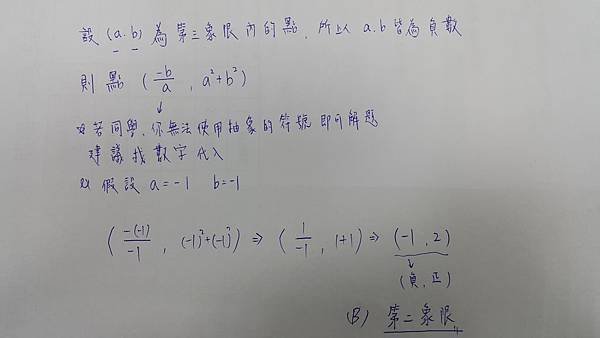 設 (a.b) 為第三象限內的點, 所以 a.b 皆為負數
則 點 (-b/a , a²+b²)
↓
※若同學, 你無法使用抽象的符號 即可解題
建議找數字代入
※ 假設 a=-1 b=-1
(-(-1)/-1 , (-1)²+(-1)²) ⇒ (1/-1 , 1+1) ⇒ (-1 , 2)
↓
(負, 正)
(B) 第二象限